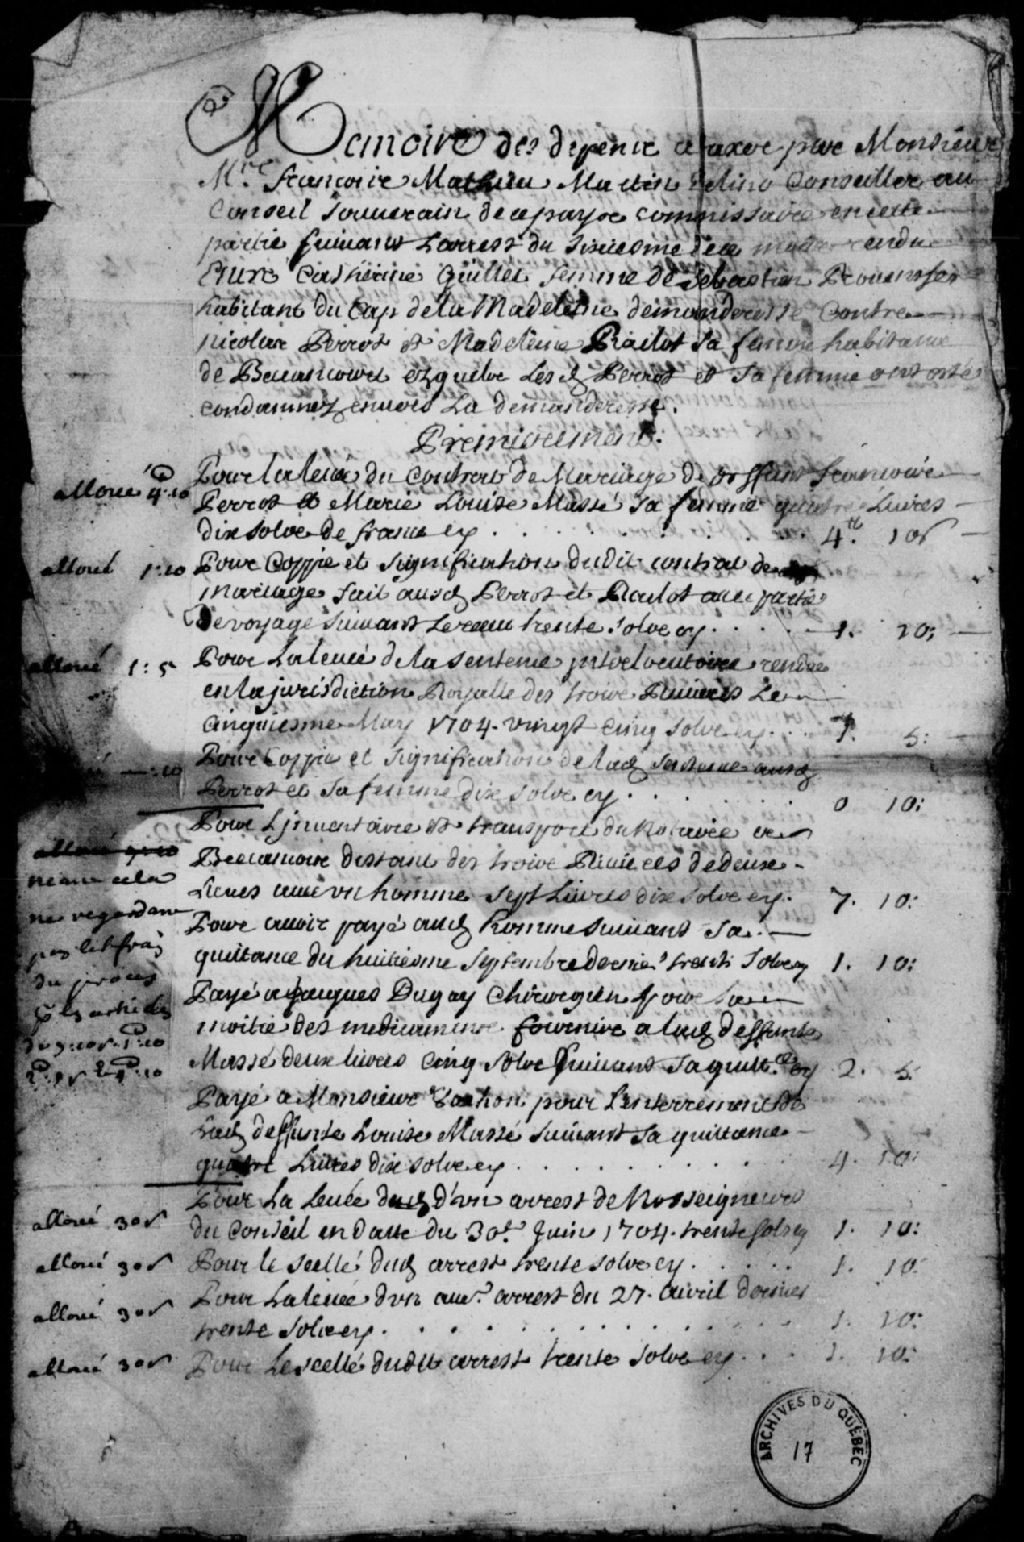 Memoire des depence a taxer par Monsieur
Mre francoise Mathieu Martin Delino Conseiller au
Conseil Souverain de ce pays commissaire en cette
partie suivant Larrest du Sixiesme de ce mois rendu
Entre Catherine Guillet femme de Sebastien Prouencher
habitant du Cap de la Madeleine demanderesse Contre
nicolas Perrot et Madeleine Raclot sa femme habitans
de Becancourt Esquelz Lesd Perrot et sa femme ont esté
condamnez envers La demanderesse.
Premierement.
alloué 4:10 Pour la levée du Contrat de Mariage de deffunt francoise
Perrot et Marie Louise Massé sa femme quatre Livres
dix solz de france cy . . . . 4lt. 10s
alloué 1:10 Pour Coppie et signification dudit contrat de
mariage fait ausd Perrot et Raclot avec partie
de voyage suivant le receu trente solz cy . . . . 1. 10:
alloué 1:5 Pour La levée de la sentence intrelocutoire rendue
en la jurisdiction Royalle des trois Rivieres Le
cinquiesme May 1704. vingt cinq solz cy . . . 1. 5:
:10 Pour Coppie et signification de lad sentence ausd
Perrot et sa femme dix solz cy . . . . 0 10:
Pour Linventaire et transport du Notaire a
alloué 9:10 Becancour distant des trois Rivieres de deux
neant cela Lieues avec un homme sept Livres dix solz cy. 7. 10:
ne regardant Pour avoir payé aud homme suivant sa
pas les frais quittance du huitiesme Septembre dernier trente solz cy 1. 10:
du proces Payé a Jacques Dugay Chirurgien pour la
moitié des medicamens fournire a lad deffunte
Massé deux livres cinq solz suivant sa quittce cy 2. 5:
Payé a Monsieur pour Lenterrement de
Lad deffunte Louise Massé suivant sa quittance
quatre Livres dix solz cy . . . . 4. 10:
alloué 30s Pour La Levée dud d'un arrest de Nosseigneurs
du Conseil en datte du 30e. Juin 1704. trente solz cy 1. 10:
alloué 30s Pour le scellé dud arrest trente solz cy . . . . 1. 10:
alloué 30s Pour La levée d'un aure. arrest du 27. avril dernier
trente solz cy . . . . 1. 10:
alloué 30s Pour Le scellé dudit arrest trente solz cy . . . 1. 10:
ARCHIVES DU QUÉBEC
17